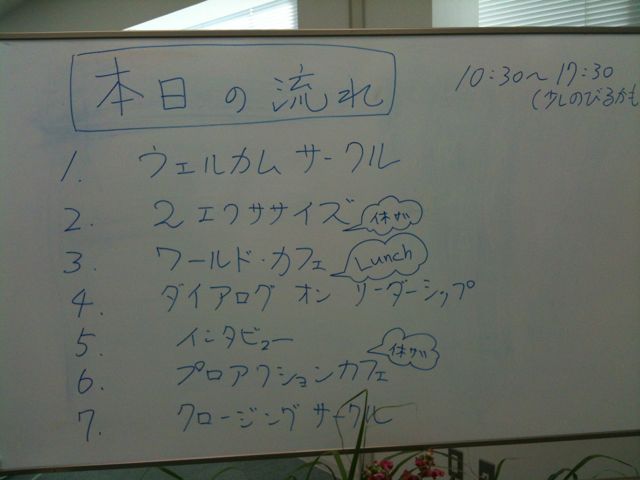 本日の流れ
10:30〜17:30
(少しのびるかも
1. ウェルカム サークル
2. 2エクササイズ 休けい
3. ワールド・カフェ Lunch
4. ダイアログ オン リーダーシップ
5. インタビュー
6. プロアクションカフェ 休けい
7. クロージング サークル